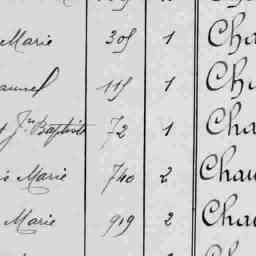 Marie 305 1 Cha
115 1 Cha
Jn Baptiste 72 1 Cha
Marie 740 2 Chau
Marie 919 2 Chau